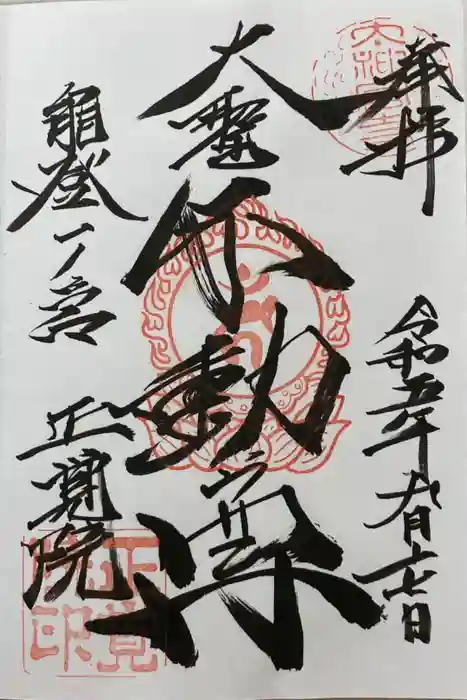 奉拝
令和五年九月十七日
大聖不動尊
能登一ノ宮
正覚院
正覚院印